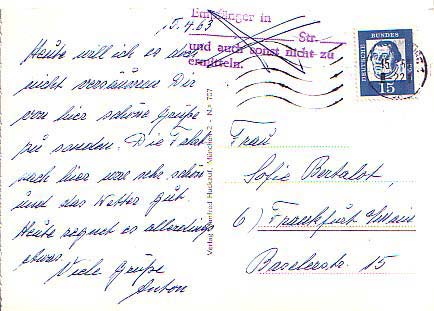 15.4.63
Heute will ich es doch
nicht versäumen Dir
von hier schöne Grüße
zu senden. Die Fahrt
nach hier war sehr schön
und das Wetter gut.
Heute regnet es allerdings
etwas.
Viele Grüße
Anton
Empfänger in
Str.
und auch sonst nicht zu
ermitteln.
DEUTSCHE BUNDESPOST
15
Verlag
München
Nr. 757
Frau
Sofie Bertalot,
6) Frankfurt/Main
Baselerstr. 15